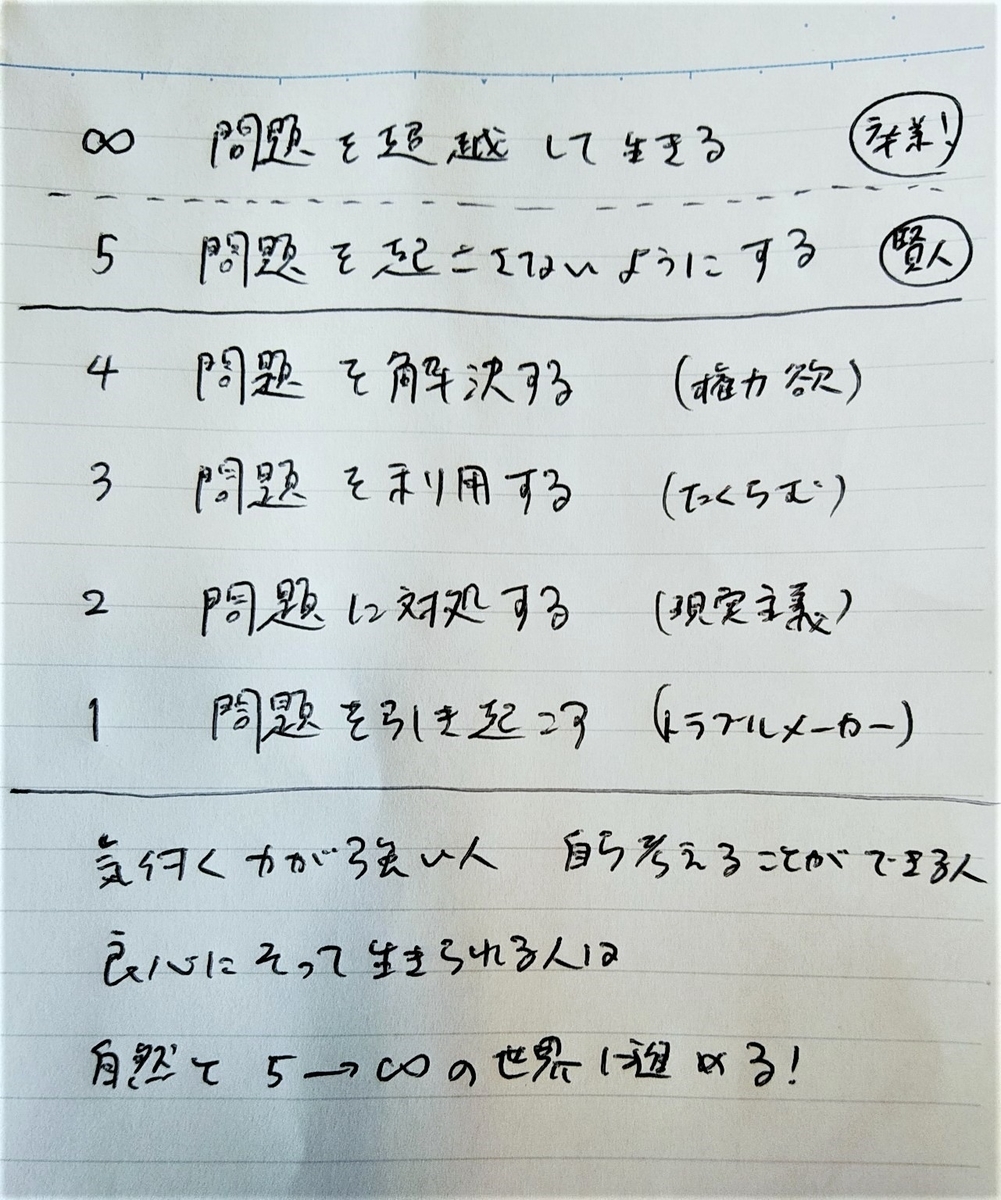 ∞ 問題を超越して生きる 卒業!
5 問題を起こさないようにする 賢人
4 問題を解決する (権力欲)
3 問題を利用する (たくらむ)
2 問題に対処する (現実主義)
1 問題を引き起こす (トラブルメーカー)
気付く力が強い人 自ら考えることができる人
良心にそって生きられる人は
自然と 5→∞の世界に進める!